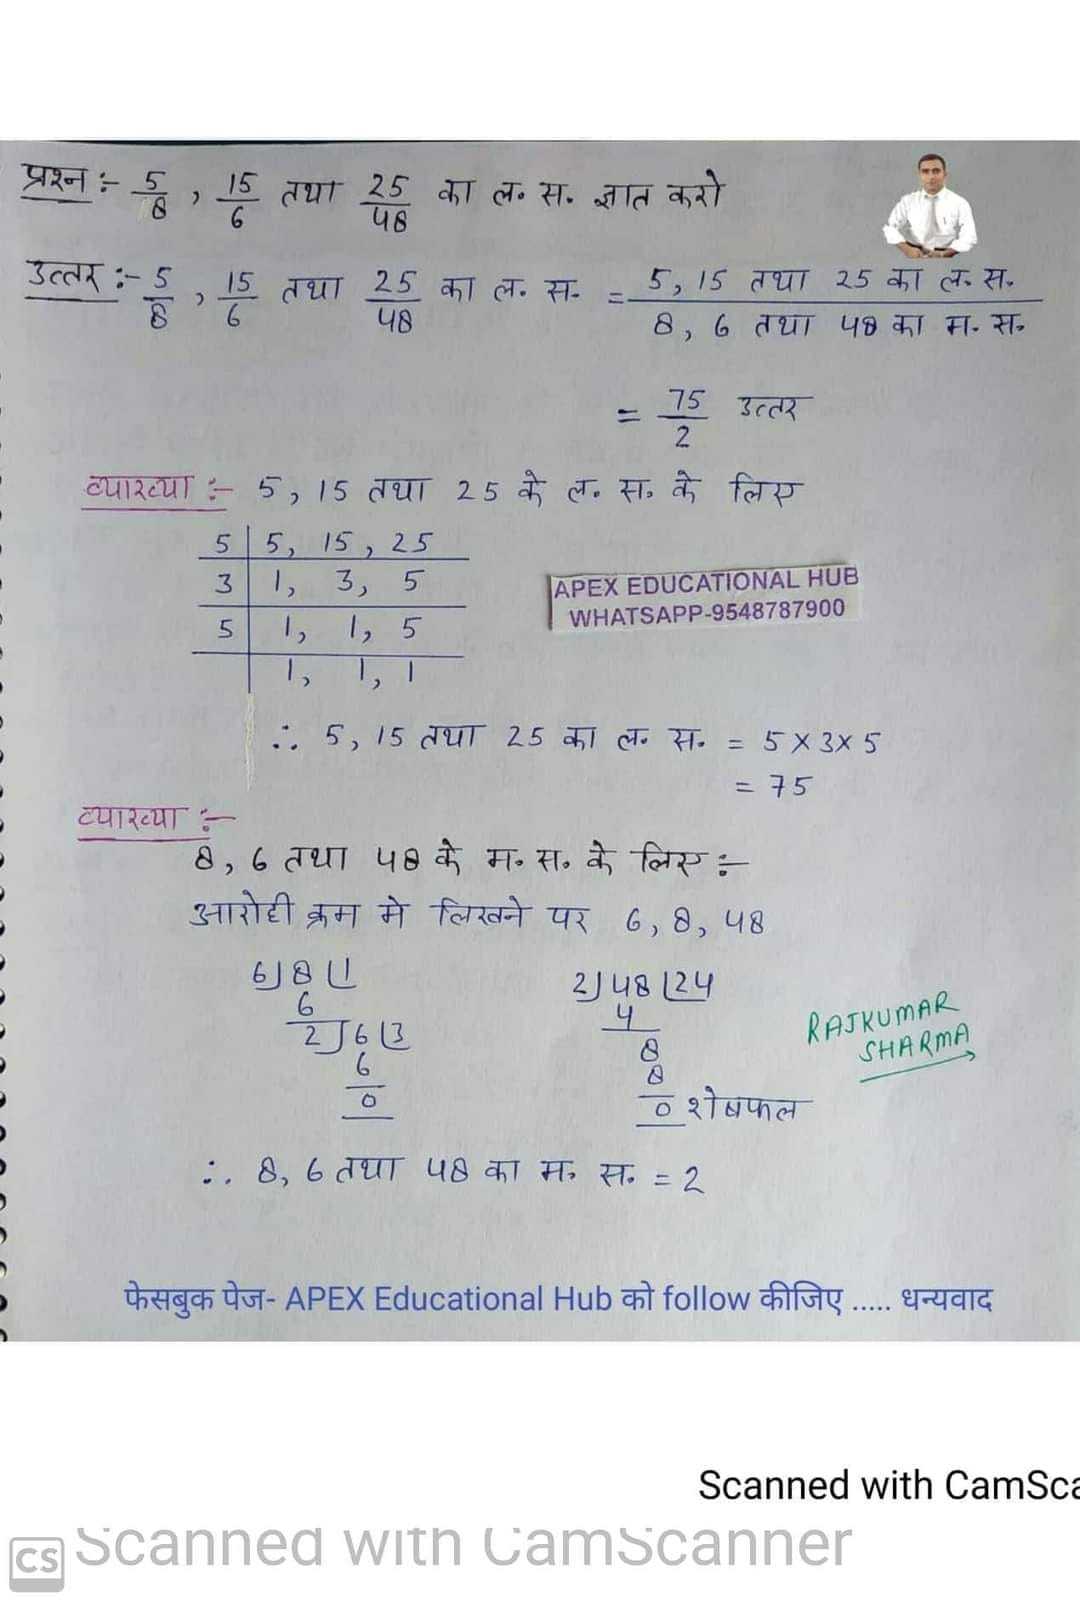 प्रश्न :- 5/8 , 15/6 तथा 25/48 का ल. स. ज्ञात करो
उत्तर :- 5/8 , 15/6 तथा 25/48 का ल. स. = 5, 15 तथा 25 का ल. स. / 8, 6 तथा 48 का म. स.
= 75/2 उत्तर
व्याख्या :- 5, 15 तथा 25 के ल. स. के लिए
5 | 5, 15, 25
3 | 1, 3, 5
5 | 1, 1, 5
1, 1, 1
APEX EDUCATIONAL HUB
WHATSAPP-9548787900
∴ 5, 15 तथा 25 का ल. स. = 5 × 3 × 5
= 75
व्याख्या :-
8, 6 तथा 48 के म. स. के लिए :-
आरोही क्रम मे लिखने पर 6, 8, 48
6) 8 (1
6
2) 6 (3
6
0
2) 48 (24
4
8
8
0 शेषफल
RAJKUMAR
SHARMA
∴ 8, 6 तथा 48 का म. स. = 2
फेसबुक पेज- APEX Educational Hub को follow कीजिए ..... धन्यवाद
Scanned with CamSca
CS Scanned with CamScanner